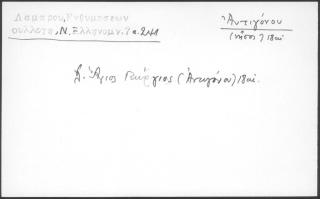 Λάμπρου, Ἐνθυμήσεων
συλλογή, Ν. Ἑλληνομν. 7 σ. 241
Ἀντιγόνου
(νῆσος)
Ἅγιος Γεώργιος (Ἀντιγόνου)